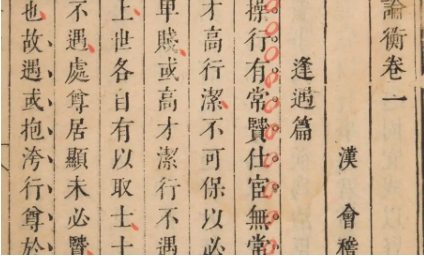 論衡卷一
漢　會稽
逢遇篇
操行有常賢仕宦無常
才高行潔不可保以必
卑賤或高才潔行不遇
上世各自有以取士士
不遇處尊居顯未必賢
也故遇或抱洿行尊於